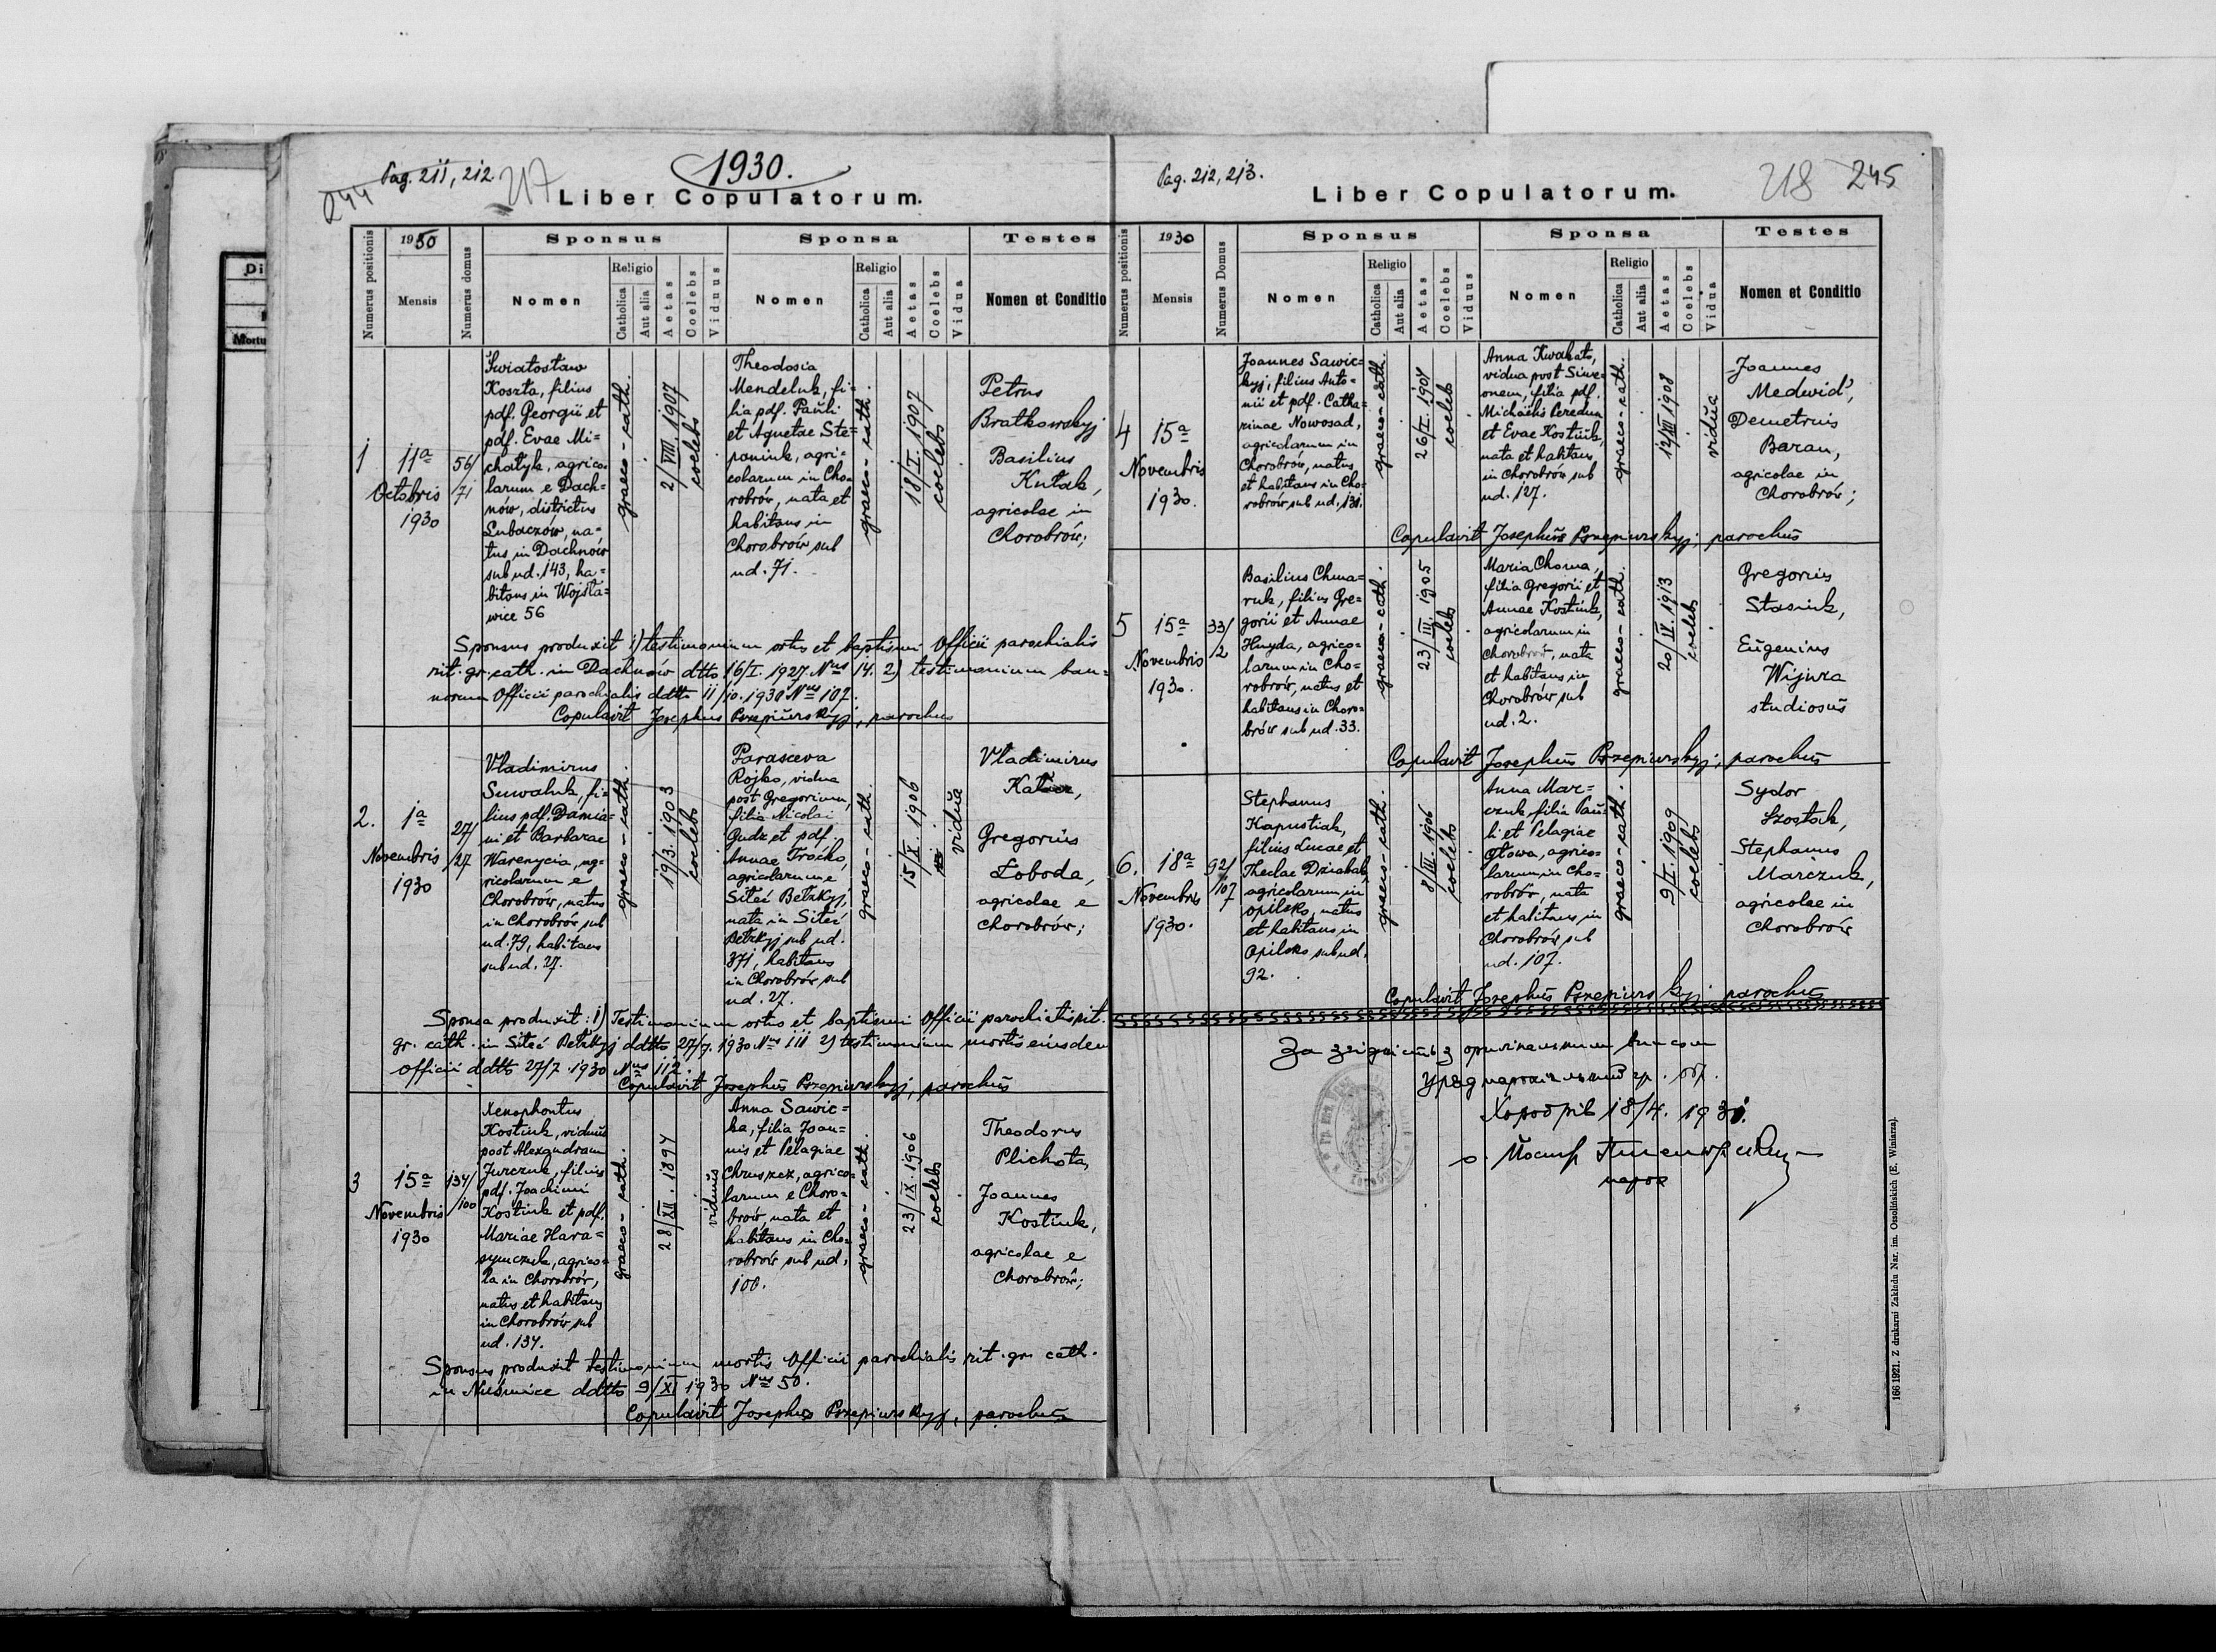 Pag. 211, 212
1930.
244
217
Liber Copulatorum.
Numerus positionis
1930
Mensis
Numerus domus
Sponsus
Nomen
Religio
Catholica
Aut alia
Aetas
Coelebs
Viduus
Sponsa
Nomen
Religio
Catholica
Aut alia
Aetas
Coelebs
Vidua
Testes
Nomen et Conditio
1
11a
Octobris
1930
56/
71
Światosław
Koszta, filius
pdf. Georgii et
pdf. Evae Mi=
chatyk, agrico=
larum e Dach=
nów, districtus
Lubaczów, na=
tus in Dachnów
sub nd. 143, ha=
bitans in Wojsła=
wice 56
graeco-cath.
2/VIII.1907
coelebs
Theodosia
Mendeluk, fi=
lia pdf. Pauli
et Agnetae Ste=
paniuk, agri=
colarum in Cho=
robrów, nata et
habitans in
Chorobrów sub
nd. 71.
graeco-cath.
18/I.1907
coelebs
Petrus
Bratkowskyj
Basilius
Kutak,
agricolae in
Chorobrów;
Sponsus produxit 1) testimonium ortus et baptismi Officii parochialis
rit. gr. cath. in Dachnów ddto 16/I.1927. Nus 14. 2) testimonium ban=
norum Officii parochialis ddto 11/10.1930 Nus 107.
Copulavit Josephus Pszepiurskyj, parochus
2.
1a
Novembris
1930
27/
27
Vladimirus
Suwaluk, fi=
lius pdf. Damia=
ni et Barbarae
Warenycia, ag=
ricolarum e
Chorobrów, natus
in Chorobrów sub
nd. 79, habitans
sub nd. 27.
graeco-cath.
19/3.1903
coelebs
Parasceva
Rojko, vidua
post Gregorium,
filia Nicolai
Gudz et pdf.
Annae Troćko,
agricolarum e
Siteć Betzkyj,
nata in Siteć
Betzkyj sub nd.
371, habitans
in Chorobrów sub
nd. 27.
graeco-cath.
15/X.1906
vidua
Vladimirus
Gregorius
Łoboda,
agricolae e
Chorobrów;
Sponsa produxit: 1) Testimonium ortus et baptismi Officii parochialis rit.
gr. cath. in Siteć Betzkyj ddto 27/7.1930 Nus 111 2) testimonium mortis eiusdem
Officii ddto 27/7.1930 Nus 112.
Copulavit Josephus Pszepiurskyj, parochus
3
15a
Novembris
1930
134/
100
Xenophontus
Kostiuk, viduus
post Alexandram
Jurczuk, filius
pdf. Joachimi
Kostiuk et pdf.
Mariae Hara=
symczuk, agrico=
la in Chorobrów,
natus et habitans
in Chorobrów sub
nd. 134.
graeco-cath.
28/XII.1894
viduus
Anna Sawic=
ka, filia Joan=
nis et Pelagiae
Chruszcz, agrico=
larum e Choro=
brów, nata et
habitans in Cho=
robrów sub nd.
100.
graeco-cath.
23/IX.1906
coelebs
Theodorus
Plichota,
Joannes
Kostiuk,
agricolae e
Chorobrów;
Sponsus produxit testimonium mortis Officii parochialis rit. gr. cath.
in Nuśmice ddto 9/XI 1930 Nus 50.
Copulavit Josephus Pszepiurskyj, parochus
Pag. 212, 213.
218
245
Liber Copulatorum.
Numerus positionis
1930
Mensis
Numerus Domus
Sponsus
Nomen
Religio
Catholica
Aut alia
Aetas
Coelebs
Viduus
Sponsa
Nomen
Religio
Catholica
Aut alia
Aetas
Coelebs
Vidua
Testes
Nomen et Conditio
4
15a
Novembris
1930.
Joannes Sawic=
kyj, filius Anto=
nii et pdf. Catha=
rinae Nowosad,
agricolarum in
Chorobrów, natus
et habitans in Cho=
robrów sub nd. 131.
graeco-cath.
26/I.1904
coelebs
Anna Kwakało,
vidua post Sime=
onem, filia pdf.
Michaëlis Ceredun
et Evae Kostiuk,
nata et habitans
in Chorobrów sub
nd. 127.
graeco-cath.
12/III 1908
vidua
Joannes
Medwid',
Demetrius
Baran,
agricolae in
Chorobrów;
Copulavit Josephus Pszepiurskyj, parochus
5
15a
Novembris
1930.
33/
2
Basilius Chma=
ruk, filius Gre=
gorii et Annae
Hnyda, agrico=
larum in Cho=
robrów, natus et
habitans in Choro=
brów sub nd. 33.
graeco-cath.
23/III.1905
coelebs
Maria Choma,
filia Gregorii et
Annae Kostiuk,
agricolarum in
Chorobrów, nata
et habitans in
Chorobrów sub
nd. 2.
graeco-cath.
20/IX.1913
coelebs
Gregorius
Stasiuk,
Eugenius
Wijura
studiosus
Copulavit Josephus Pszepiurskyj, parochus
6.
18a
Novembris
1930.
92/
107
Stephanus
Kapustiak,
filius Lucae et
Theclae Dziabak,
agricolarum in
Opilsko, natus
et habitans in
Opilsko sub nd.
92.
graeco-cath.
8/III.1906
coelebs
Anna Mar=
czuk, filia Pau=
li et Pelagiae
Głowa, agrico=
larum in Cho=
robrów, nata
et habitans in
Chorobrów sub
nd. 107.
graeco-cath.
9/I.1909
coelebs
Sydor
Szostak,
Stephanus
Marczuk,
agricolae in
Chorobrów
Copulavit Josephus Pszepiurskyj parochus
За згідність з оригінальним
Уряд парохіяльний гр. об.
Хоробрів 18/4. 1931.
о. Йосиф
парох
166 1921. Z drukarni Zakładu Nar. im. Ossolińskich (E. Winiarza)